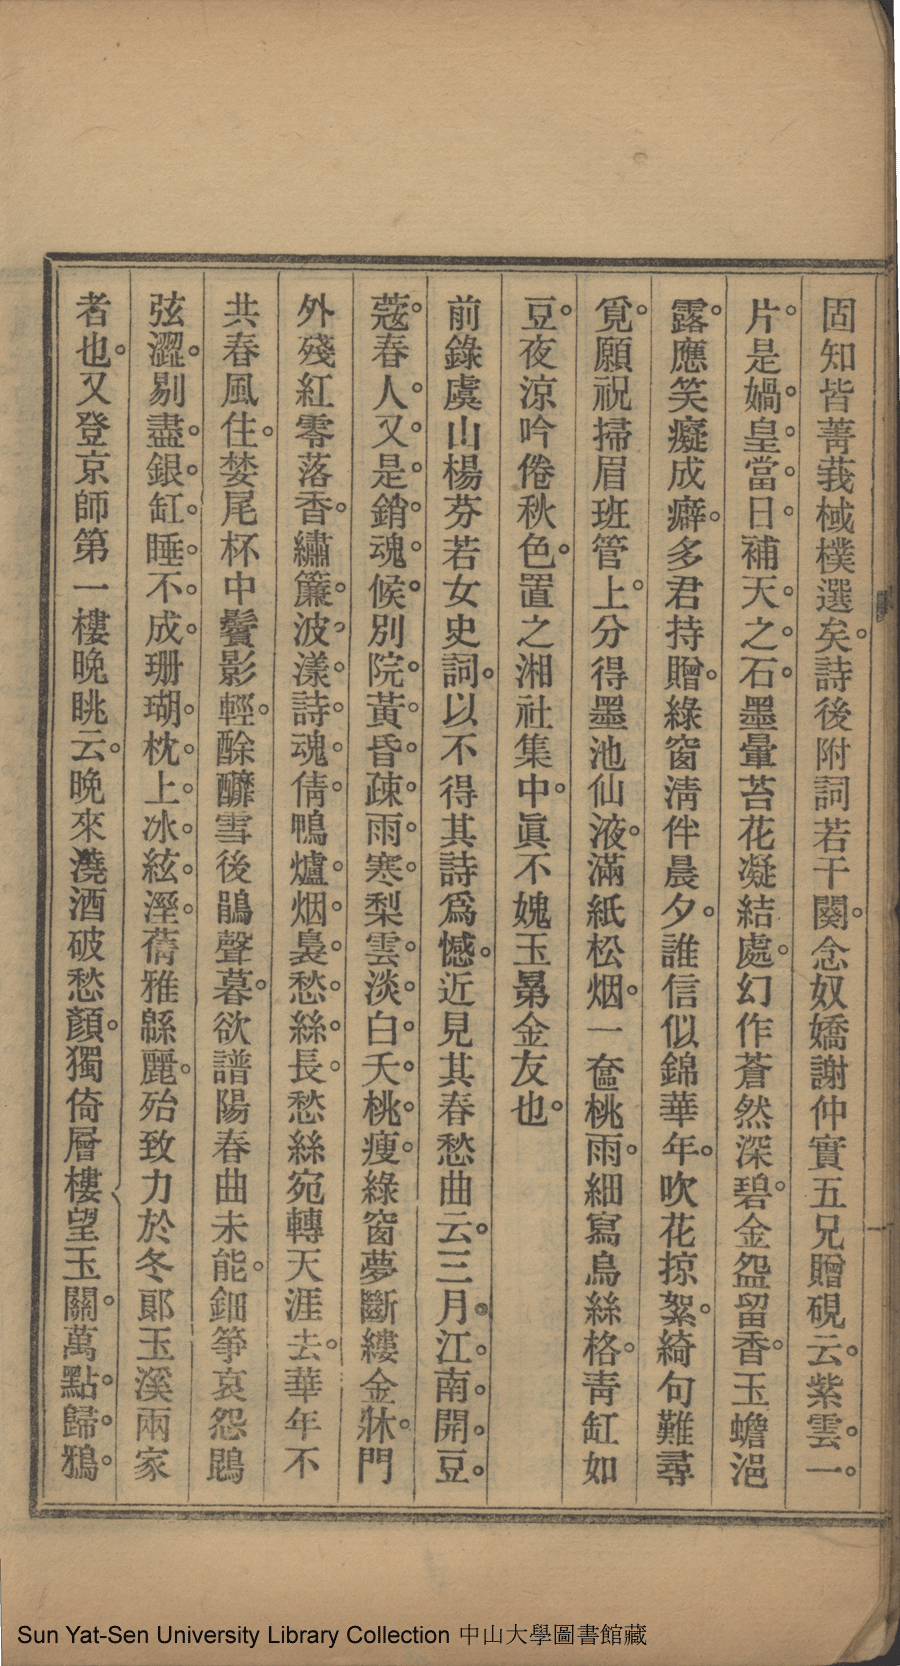 固知皆菁莪棫樸選矣。詩後附詞若干闋。念奴嬌謝仲實五兄贈硯云。紫雲。一。
片。是媧。皇。當。日。補天。之。石。墨暈苔花凝結處。幻作蒼然深碧。金盌留香。玉蟾浥
露。應笑癡成癖。多君持贈。綠窗淸伴晨夕。誰信似錦華年。吹花掠絮。綺句難尋
覓。願祝掃眉班管上。分得墨池仙液。滿紙松烟。一奩桃雨。細寫烏絲格。靑缸如
豆。夜涼吟倦秋色。置之湘社集中。眞不媿玉㬅金友也。
前錄虞山楊芬若女史詞。以不得其詩爲憾。近見其春愁曲云。三月。江。南。開。豆。
蔻。春人。又。是。銷。魂。候。別院。黃。昏。疎。雨。寒。梨雲。淡。白。夭。桃。瘦。綠窗夢斷縷金牀。門
外殘紅零落香。繡簾。波。漾。詩。魂。倩。鴨爐。烟。裊。愁。絲。長。愁絲宛轉天涯去。華年不
共春風住。婪尾杯中鬢影輕。酴醾雪後鵑聲暮。欲譜陽春曲未能。鈿箏哀怨鵾
弦澀。剔盡。銀。缸。睡。不。成。珊瑚。枕。上。冰。絃。溼。蒨雅緜麗。殆致力於冬郞玉溪兩家
者也。又登京師第一樓晚眺云。晚來澆酒破愁顏。獨倚層樓望玉關。萬點。歸。鴉。
Sun Yat-Sen University Library Collection 中山大學圖書館藏